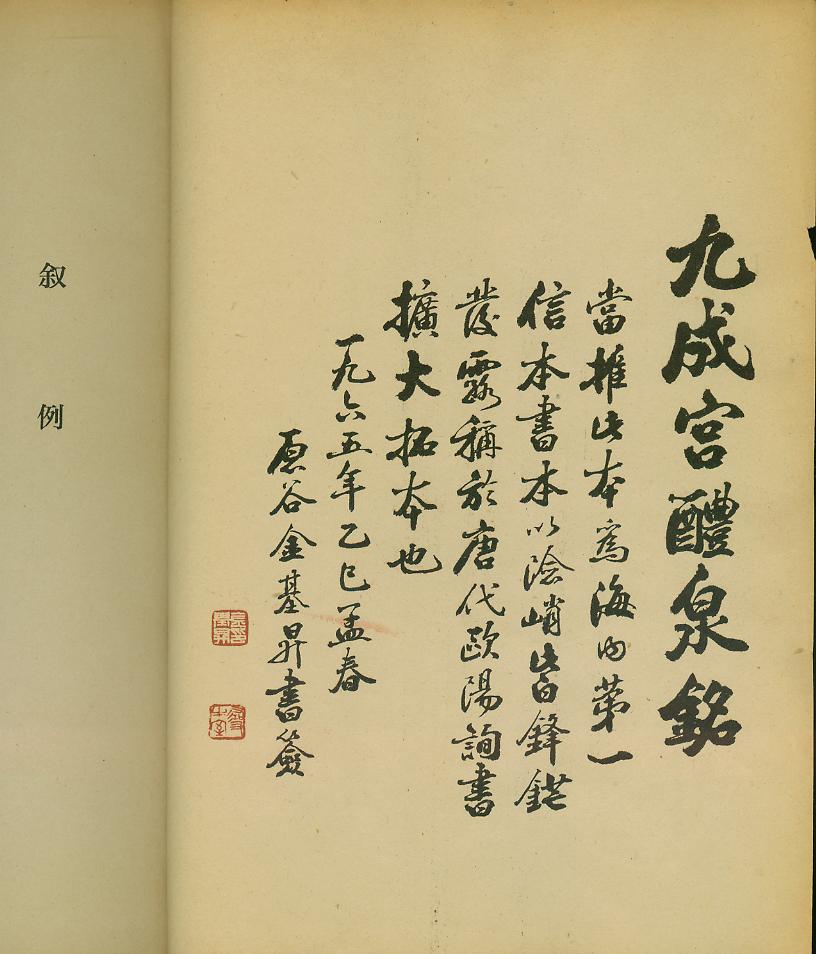 九成宮醴泉銘
當推此本爲海內第一
信本書本以險峭皆鋒鋩
發露稱於唐代歐陽詢書
擴大拓本也
一九六五年乙巳孟春
原谷金基昇書簽
叙例